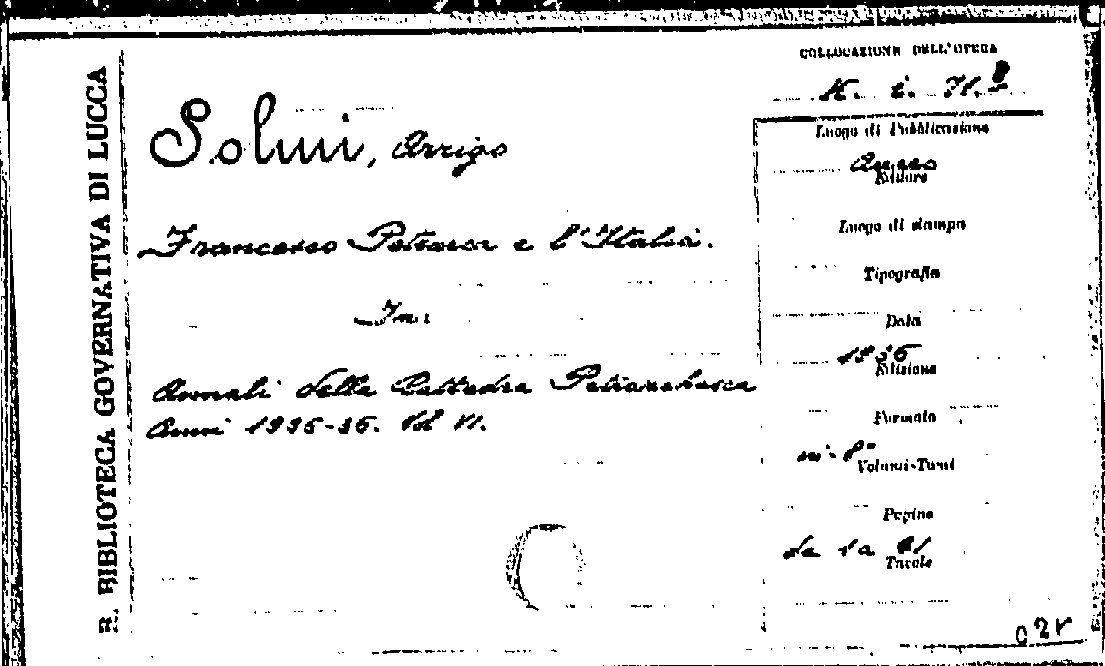 R. BIBLIOTECA GOVERNATIVA DI LUCCA
COLLOCAZIONE DELL'OPERA
Solmi, Arrigo
Luogo di Pubblicazione
Editore
Francesco Petrarca e l'Italia.
Luogo di stampa
Tipografia
In:
Data
1936
Edizione
Annali della Cattedra Petrarchesca
Anni 1935-36. Vol VI.
Formato
in-8º
Volumi-Tomi
Pagine
da 1 a
Tavole